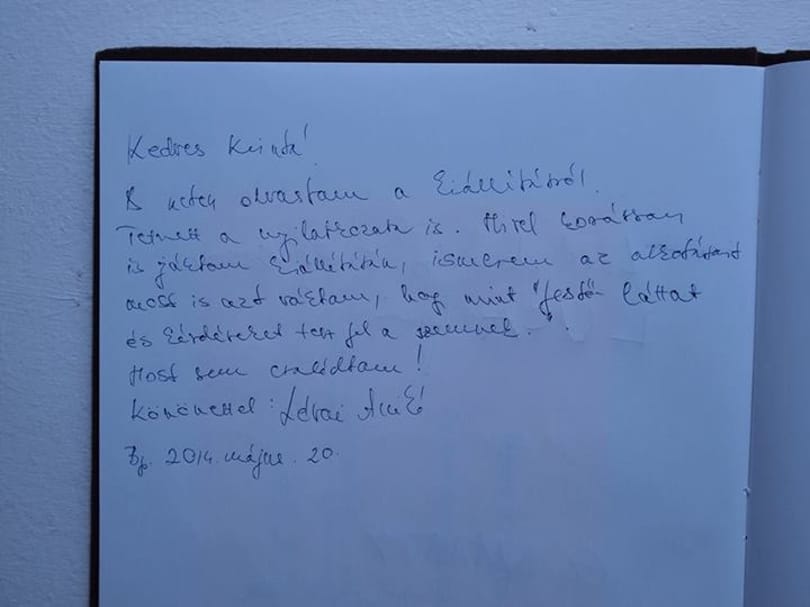 Kedves Kinda!
A neten olvastam a kiállításról.
Tetszett a nyilatkozata is. Mivel korábban
is jártam kiállításán, ismerem az alkotásait
most is azt vártam, hogy mint "festő láttat
és kérdéseket tesz fel a szemnek.".
Most sem csalódtam!
Köszönettel: Lévai
Bp. 2014. május. 20.